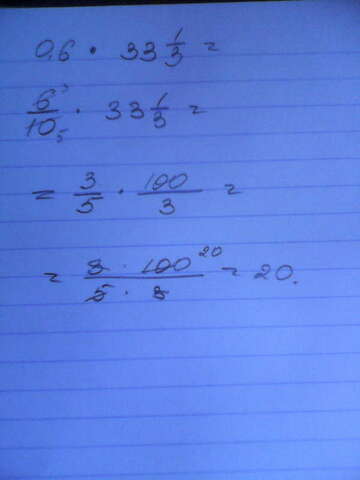 0,6 · 33 1/3 =
6³/10₅ · 33 1/3 =
= 3/5 · 100/3 =
= 3 · 100²⁰/5 · 3 = 20.